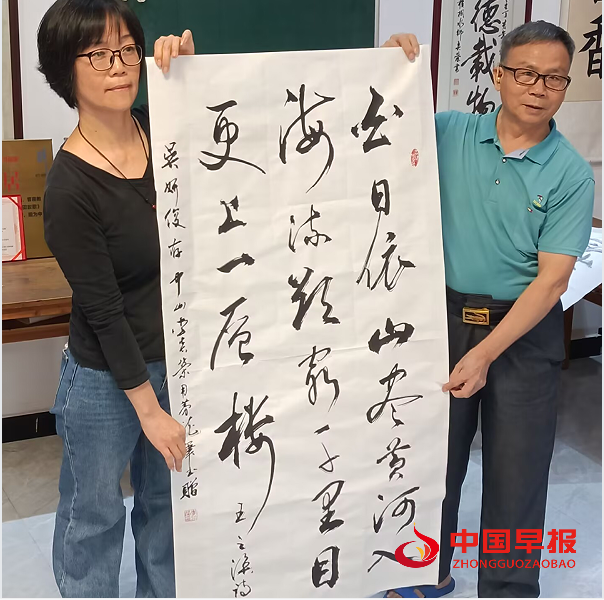 白日依山尽黄河入
海流欲穷千里目
更上一层楼 王之涣诗
吴妍俊存 中山 书赠
德载物
香
中国早报
ZHONGGUOZAOBAO